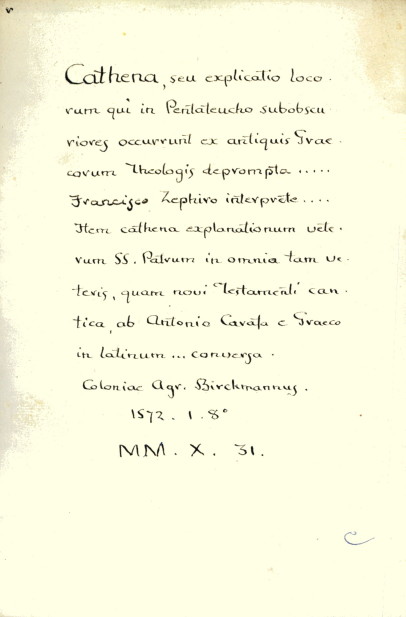 Cathena, seu explicatio loco.
rum qui in Pentateucho subobscu
riores occurrunt ex antiquis Grae.
corum Theologis deprompta .....
Francisco Zephiro interprete ....
Item cathena explanationum vete.
rum SS. Patrum in omnia tam ve.
teris, quam novi Testamenti can.
tica, ab Antonio Carafa e Graeco
in latinum ... conversa.
Coloniae Agr. Birckmannus.
1572. 1. 8º
MM. X. 31.
C